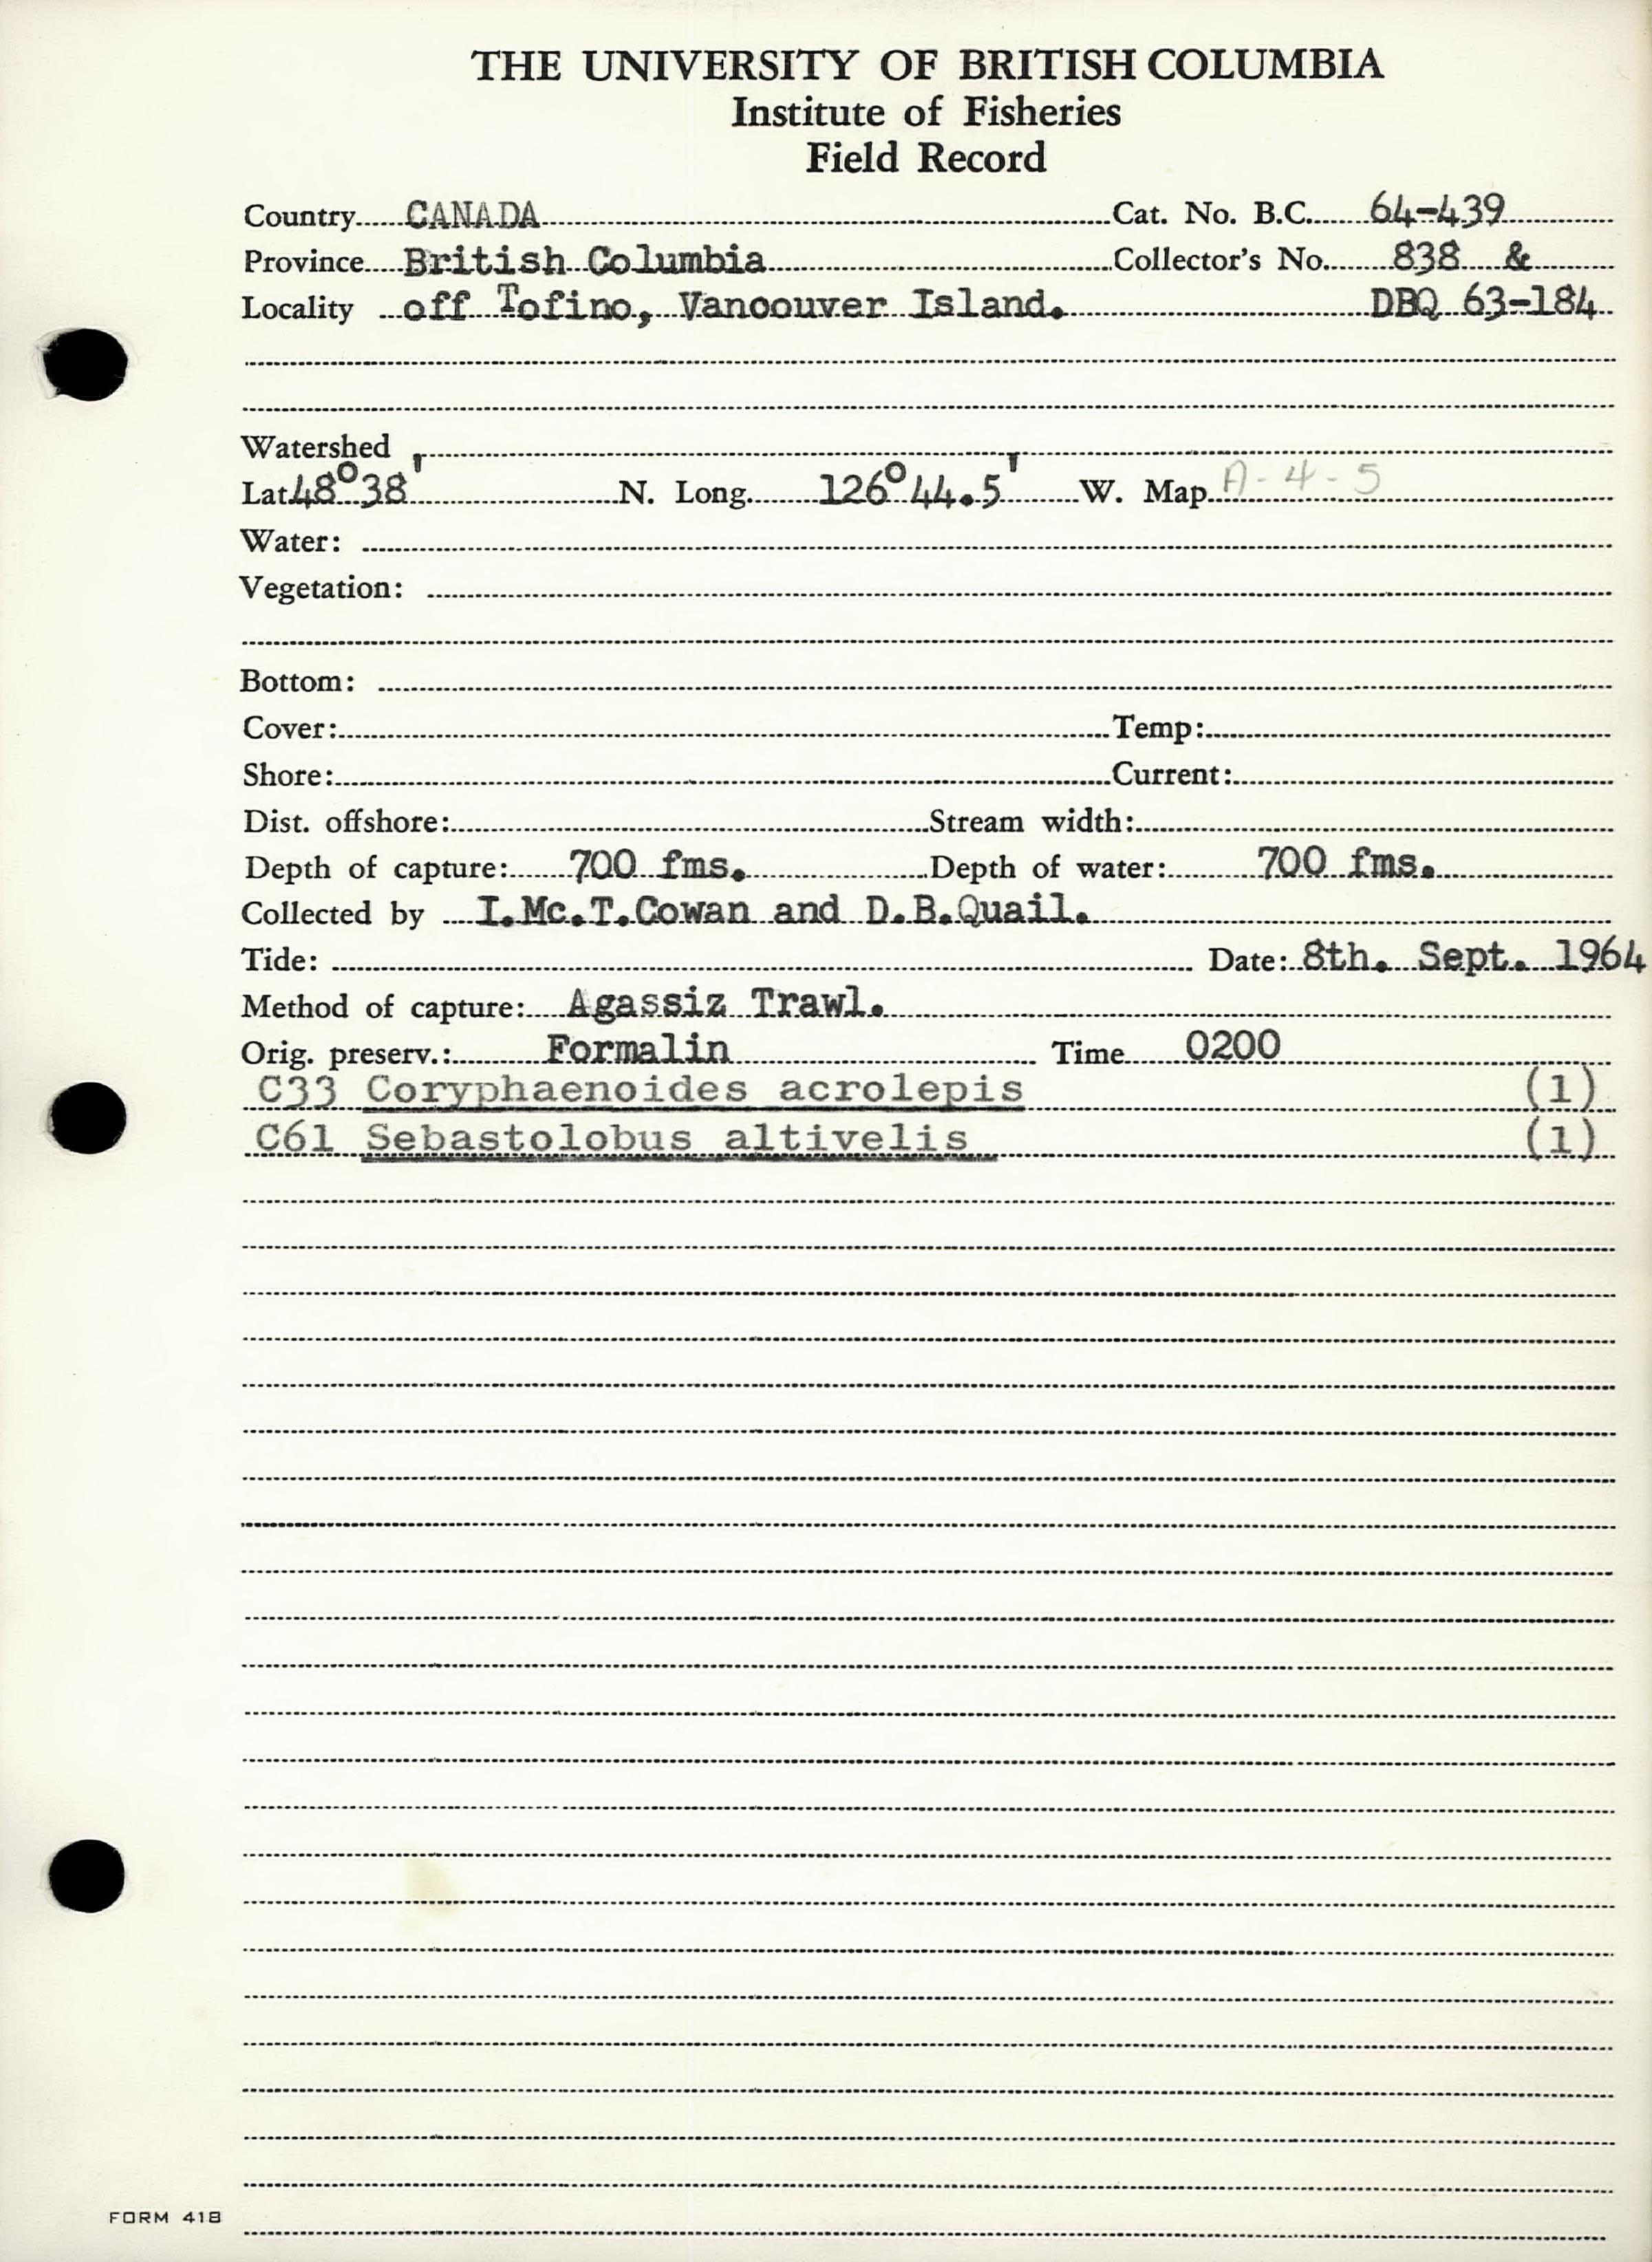 THE UNIVERSITY OF BRITISH COLUMBIA
Institute of Fisheries
Field Record
Country CANADA Cat. No. B.C. 64-439
Province British Columbia Collector's No. 838 &
Locality off Tofino, Vancouver Island. DBQ 63-184
Watershed
Lat. 48°38' N. Long. 126°44.5' W. Map A-4-5
Water:
Vegetation:
Bottom:
Cover: Temp:
Shore: Current:
Dist. offshore: Stream width:
Depth of capture: 700 fms. Depth of water: 700 fms.
Collected by I.Mc.T.Cowan and D.B.Quail.
Tide: Date: 8th. Sept. 1964
Method of capture: Agassiz Trawl.
Orig. preserv.: Formalin Time 0200
C33 Coryphaenoides acrolepis (1)
C61 Sebastolobus altivelis (1)
FORM 418